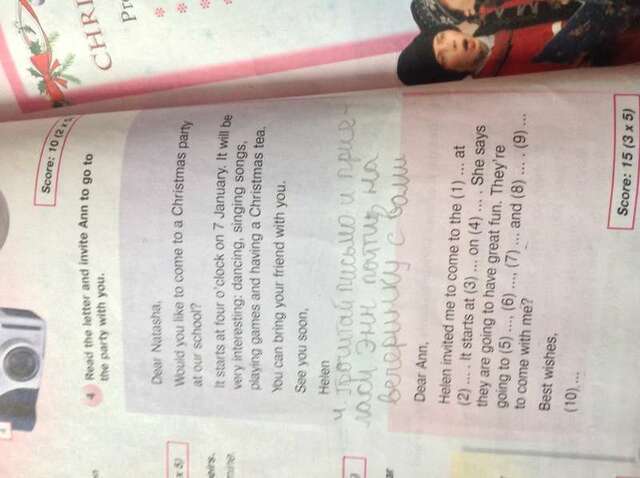 CHRI
Pr
Score: 10 (2 x
4 Read the letter and invite Ann to go to
the party with you.
Dear Natasha,
Would you like to come to a Christmas party
at our school?
It starts at four o'clock on 7 January. It will be
very interesting: dancing, singing songs,
playing games and having a Christmas tea.
You can bring your friend with you.
See you soon,
Helen
4 Прочитай письмо и приг-
ласи Энн пойти на
вечеринку с вами
Dear Ann,
Helen invited me to come to the (1) ... at
(2) .... It starts at (3) ... on (4) .... She says
they are going to have great fun. They're
going to (5) ...., (6) ...., (7) ... and (8) .... (9) ...
to come with me?
Best wishes,
(10)....
Score: 15 (3 x 5)
x 5)
eirs.
mine.
ar